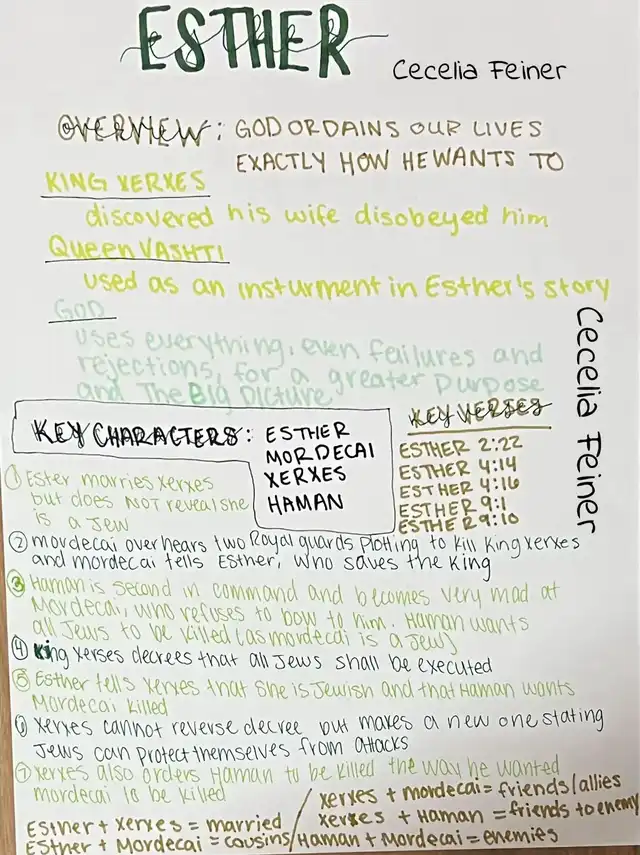 ESTHER
Cecelia Feiner
OVERVIEW: GOD ORDAINS OUR LIVES
EXACTLY HOW HE WANTS TO
KING XERXES
discovered his wife disobeyed him
Queen VASHTI
used as an insturment in Esther's story
GOD
uses everything, even failures and
rejections, for a greater purpose
and The Big Picture
Cecelia Feiner
KEY CHARACTERS: ESTHER
MORDECAI
XERXES
HAMAN
KEY VERSES
ESTHER 2:22
ESTHER 4:14
ESTHER 4:16
ESTHER 9:1
ESTHER 9:10
① Ester marries xerxes
but does NOT reveal she
is a Jew
② mordecai overhears two Royal guards Plotting to kill King xerxes
and mordecai tells Esther, who saves the King
③ Haman is second in command and becomes very mad at
Mordecai, who refuses to bow to him. Haman wants
all Jews to be killed (as mordecai is a Jew)
④ King xerses decrees that all Jews shall be executed
⑤ Esther tells xerxes that she is Jewish and that Haman wants
Mordecai killed
⑥ xerxes cannot reverse decree but makes a new one stating
Jews can protect themselves from attacks
⑦ xerxes also orders Haman to be killed the way he wanted
mordecai to be killed
Esther + xerxes = married / xerxes + mordecai = friends/allies
Esther + Mordecai = cousins / xerxes + Haman = friends to enemy
Haman + Mordecai = enemies